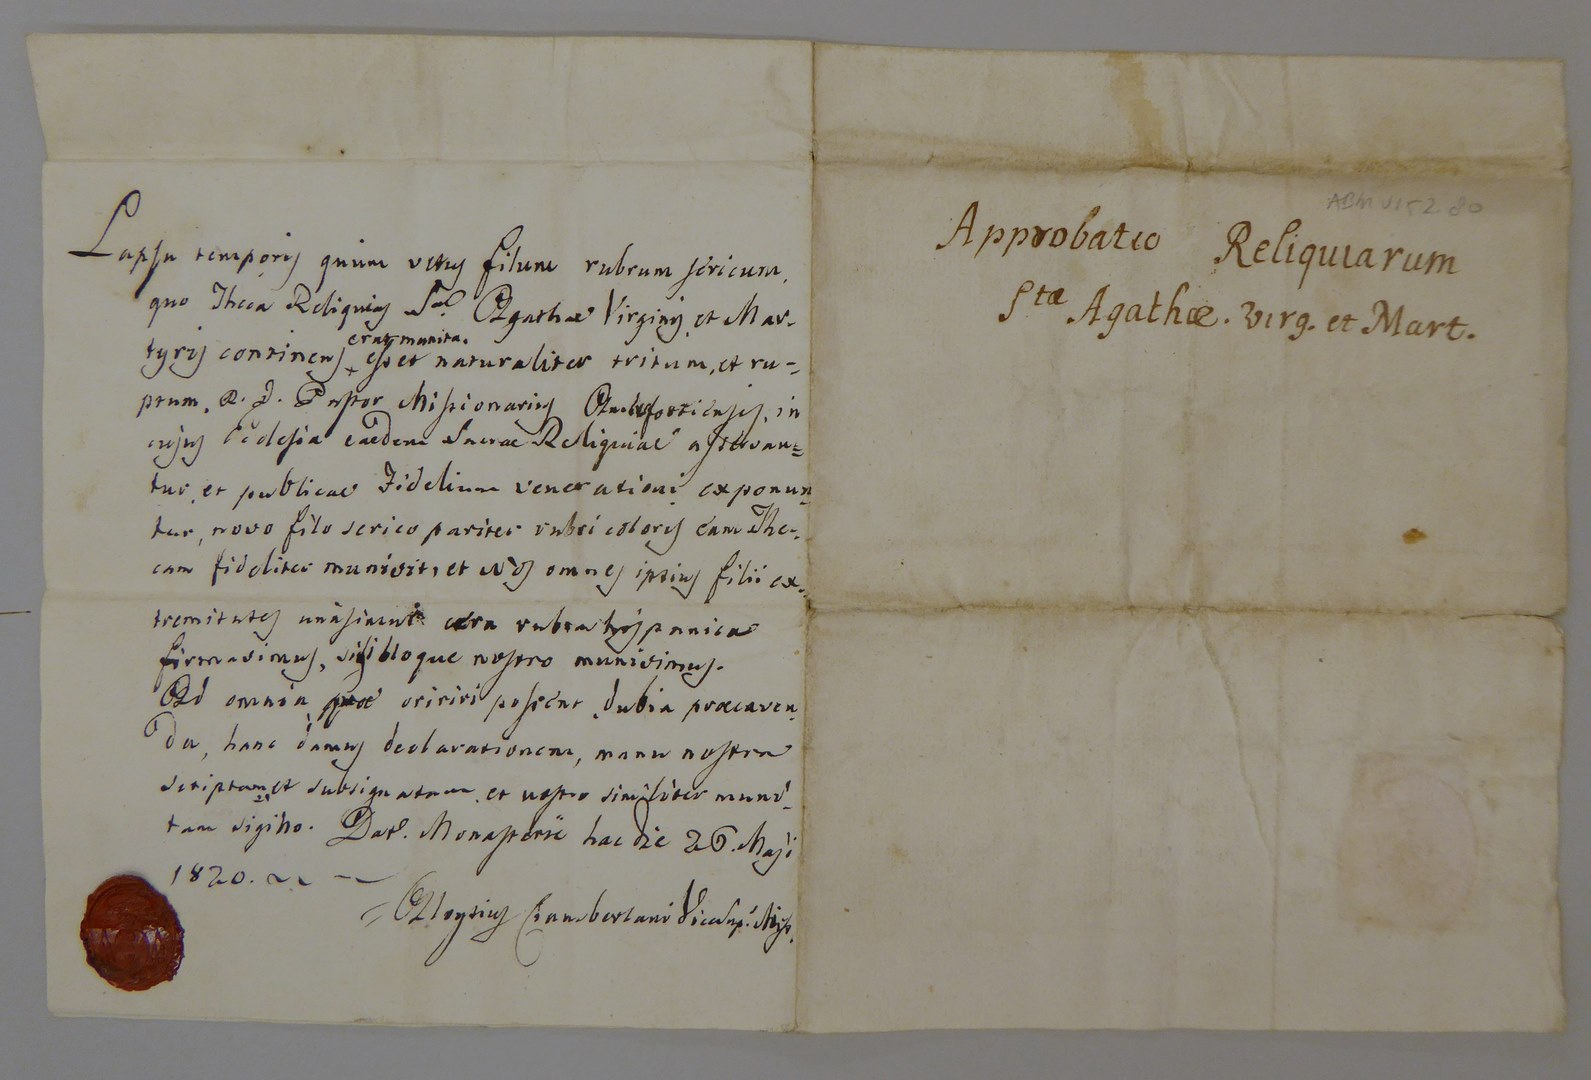 Lapsu temporis quum vetus filum rubrum sericum,
quo Theca Reliquias Stae Agathae Virginis et Mar-
erat munita.
tyris continens esset naturaliter tritum, et ru-
ptum, R. D. Pastor Missionarius in
cujus Ecclesia eaedem Sacrae Reliquiae asservan-
tur, et publicae Fidelium venerationi exponun
tur, novo filo serico pariter rubri coloris eam The-
cam fideliter munivit, et Nos omnes ipsius filii ex-
tremitates cera rubra hyspanica
firmavimus, sigilloque nostro munivimus.
Ad omnia quae oririri possent dubia praecaven
da, hanc damus declarationem, manu nostra
scriptam et subsignatam et nostro similiter muni-
tam sigillo. Dat. Monasterii hac die 26. Maji
1820.
Aloysius Ciamberlani Vicesup. Miss.
Approbatio Reliquiarum
Stae Agathae. Virg. et Mart.